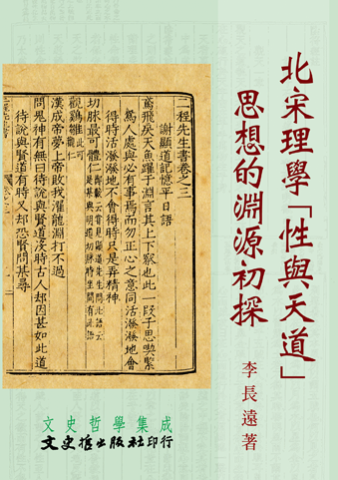 北宋理學「性與天道」
思想的淵源初探
李長遠著
二程先生書卷之三
謝顯道記憶平日語
鳶飛戾天魚躍于淵言其上下察也此一段子思喫緊
為人處與必有事焉而勿正心之意同活潑潑地會
得時活潑潑地不會得時只是弄精神
切脉最可體仁
觀雞雛
此可觀仁
漢成帝夢上帝敗我濯龍淵打不過
問鬼神有無曰待說與賢道沒時古人却因甚如此道
待說與賢道有時又却恐賢問某尋
文史哲學集成
文史哲出版社印行